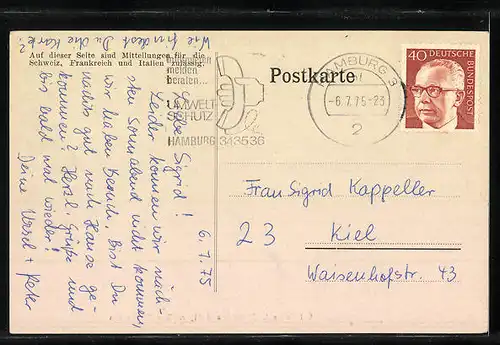 Wie findest Du die Karte?
Auf dieser Seite sind Mitteilungen für die
Schweiz, Frankreich und Italien zulässig.
Liebe Sigrid!
6.7.75
Leider können wir näch-
sten Sonnabend nicht kommen,
wir haben Besuch. Bist Du
nachts gut nach Hause ge-
kommen? Herzl. Grüße und
bis bald mal wieder!
Deine Ursel + Peter
melden
beraten...
UMWELT
SCHUTZ
HAMBURG 343536
Postkarte
HAMBURG 3
-6.7.75-23
2
40
DEUTSCHE
BUNDESPOST
Frau Sigrid Kappeller
23 Kiel
Waisenhofstr. 43